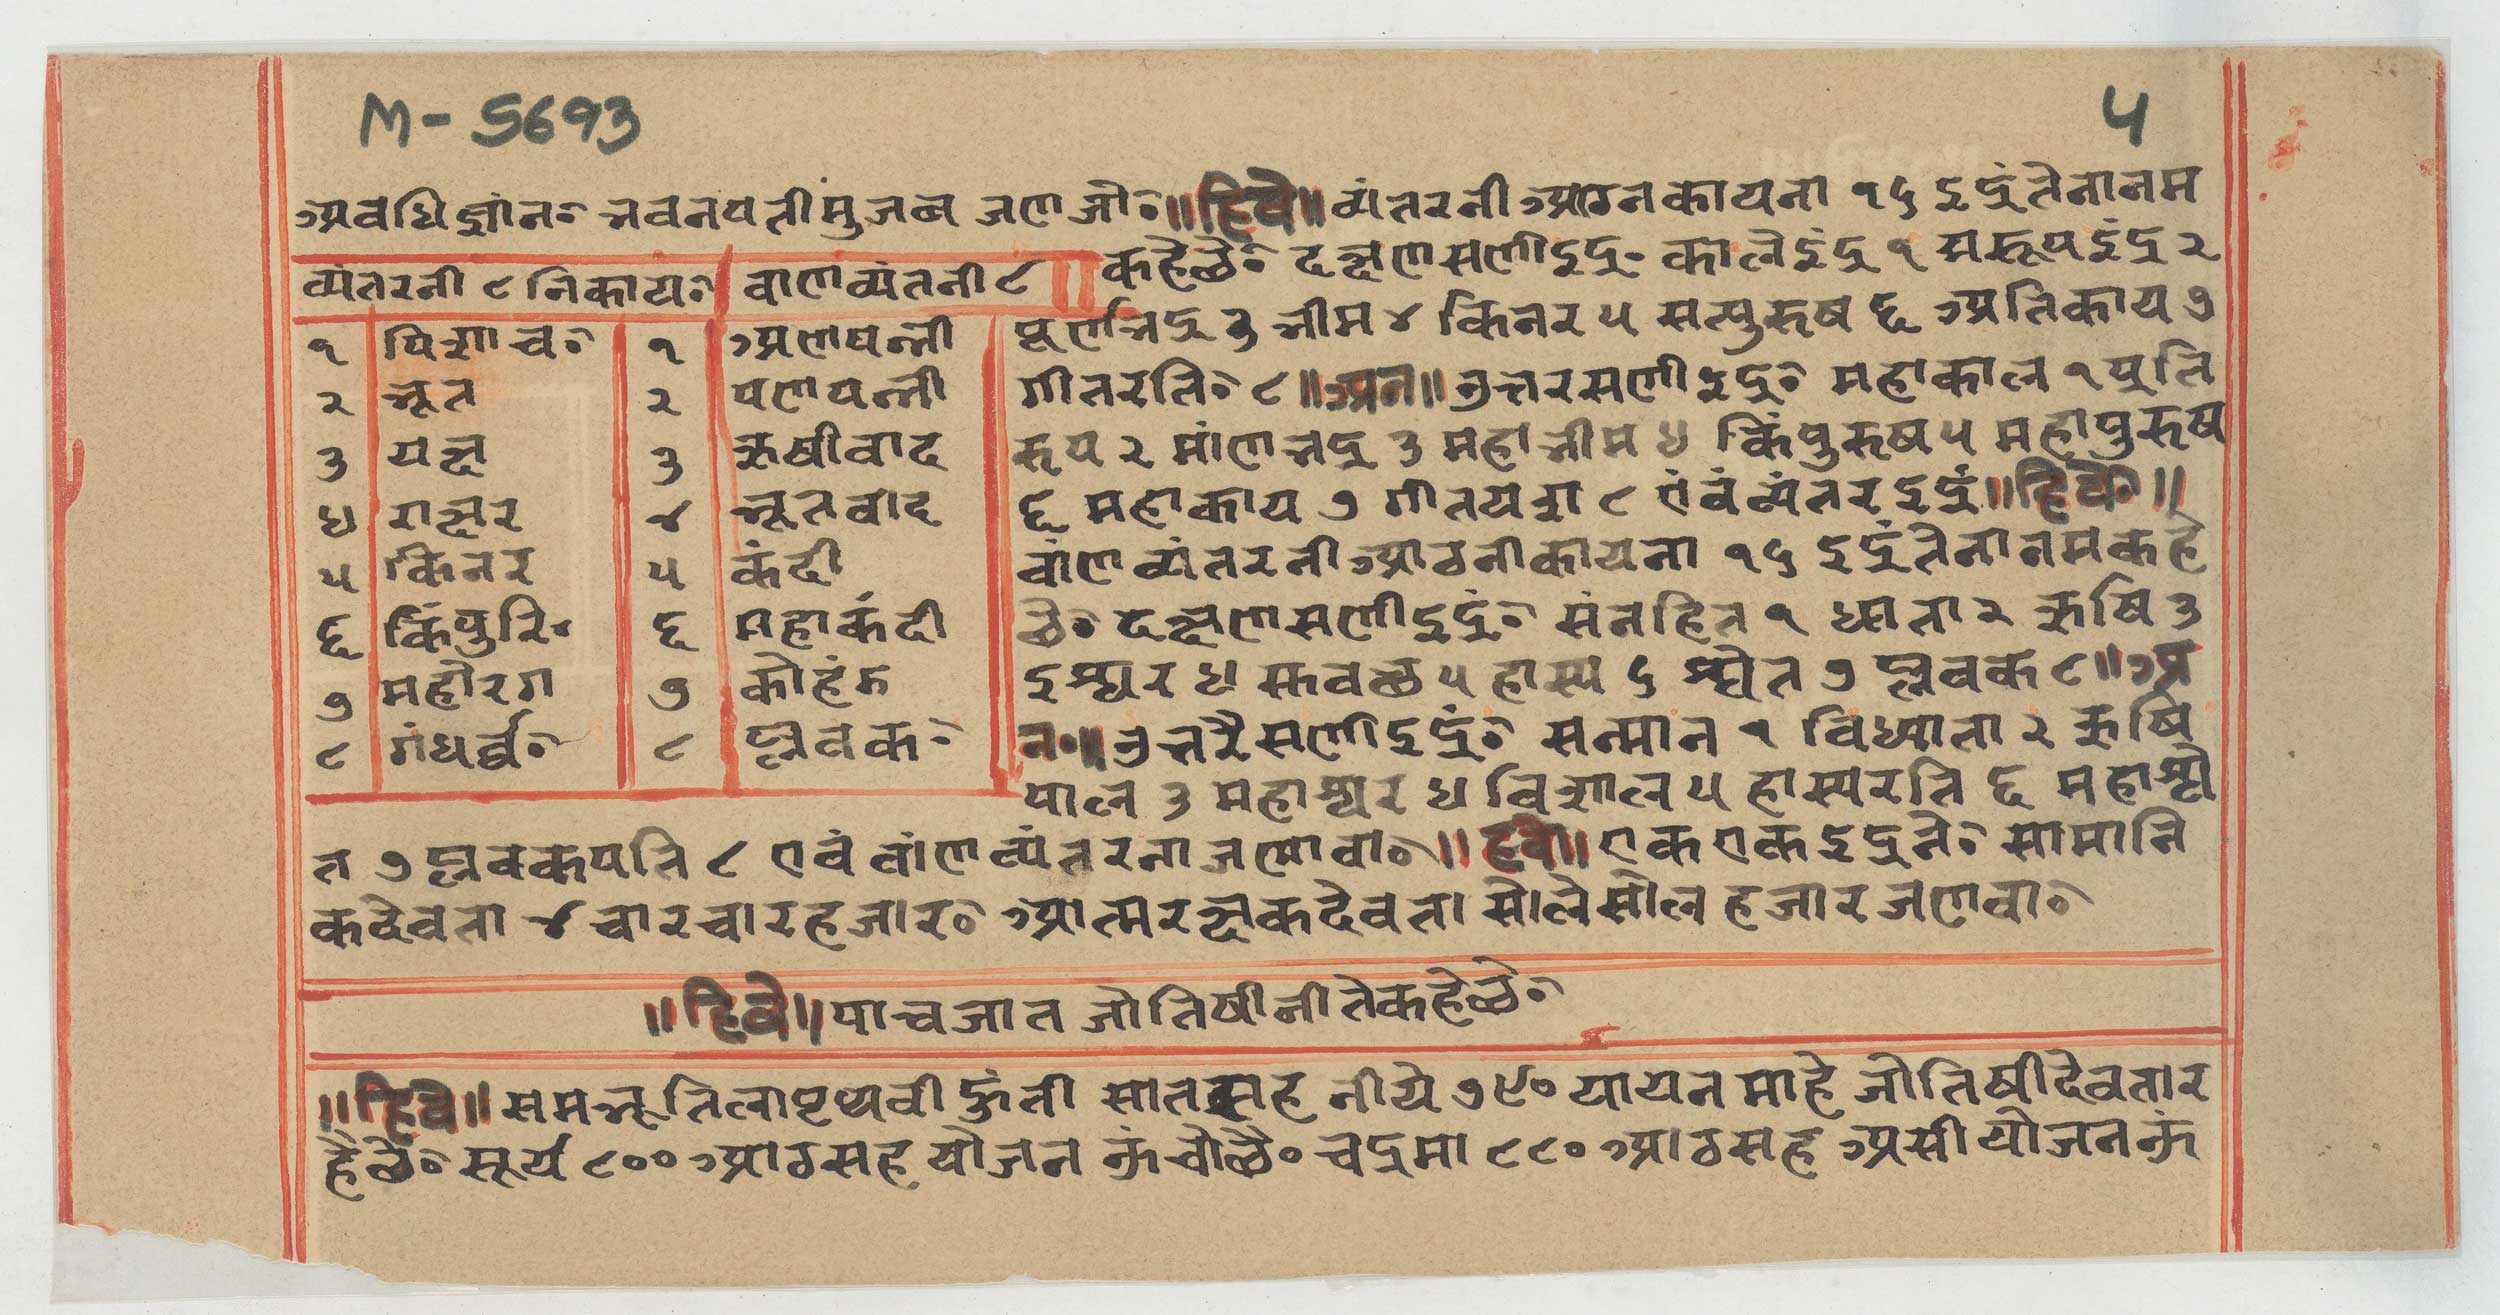 M - 5693
५
अवधिज्ञांन॰ भवनपतीमुजब जणजो॰ ॥हिवे॥ व्यंतरनी आठनकायना १६ इद्रंतेनानम
कहेछे॰ दक्षणसणीइद्र॰ कालेइंद्र १ सरूपइंद्र २
व्यंतरनी ८ निकाय॰ वाणव्यंतनी ८
पूर्णभद्र ३ भीम ४ किनर ५ सत्पुरूष ६ अतिकाय ७
१ पिशाच॰ १ अणपन्नी
गीतरति॰ ८ ॥अन॥ उत्तरसणीइद्र॰ महाकाल १ प्रति
२ भूत २ पणपन्नी
रूप २ मांणभद्र ३ महाभीम ४ किंपुरूष ५ महापुरूष
३ यक्ष ३ ऋषीवाद
६ महाकाय ७ गीतयश ८ एवंव्यंतरइद्रं ॥हिवे॥
४ राक्षर ४ भूतवाद
वांणव्यंतरनीआठनीकायना १६ इद्रंतेनानमकहे
५ किनर ५ कंदी
छे॰ दक्षणसणीइद्रं॰ संनहित १ धाता २ ऋषि ३
६ किंपुरि॰ ६ महाकंदी
इस्वर ४ सवछ ५ हास्य ६ श्वेत ७ प्लवक ८ ॥अ
७ महोरग ७ कोहंड
न॰॥ उत्तरेसणीइद्रं॰ सन्मान १ विधाता २ ऋषि
८ गंधर्व॰ ८ प्लवक॰
पाल ३ महास्वर ४ विशाल ५ हास्यरति ६ महाश्वे
त ७ प्लवकपति ८ एवं वांणव्यंतरना जणवा॰ ॥हवे॥ एकएकइद्रने॰ सामानि
कदेवता ४ चारचारहजार॰ आत्मरक्षकदेवता सोलेसोलहजारजणवा॰
॥हिवे॥ पाचजात जोतिषीनीतेकहेछे॰
॥हिवे॥ समभूतिलापृथवीहुंती सातसह नीये ७९० यायनमाहे जोतिषीदेवतार
हेछे॰ सूर्य ८०० आठसहयोजन उंचोछे॰ चद्रमा ८८० आठसह असीयोजनउं